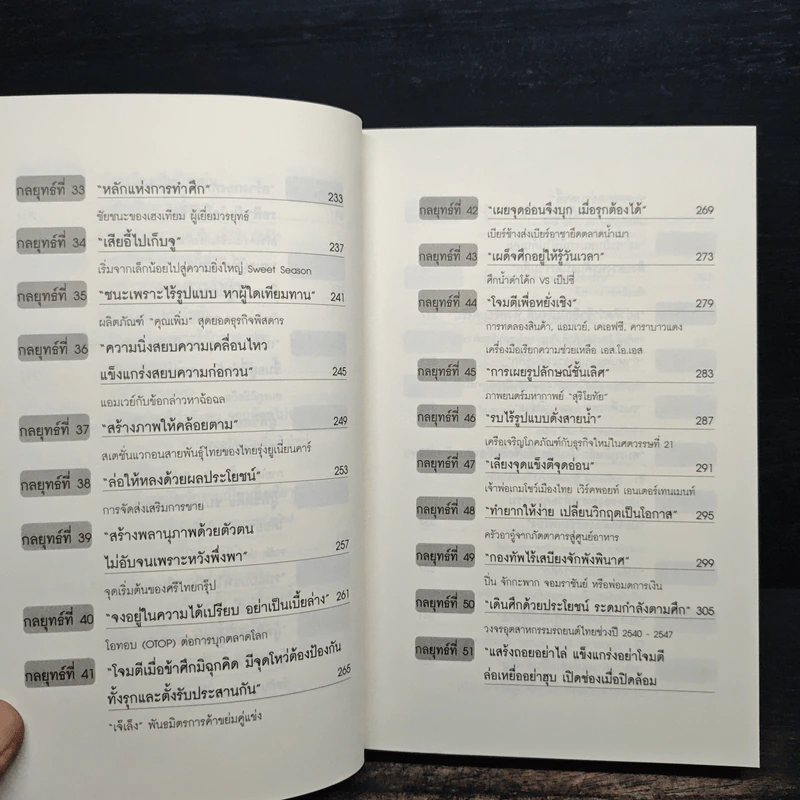 กลยุทธ์ที่ 33 "หลักแห่งการทำศึก" 233
ชัยชนะของเฮงเทียม ผู้เยี่ยมวรยุทธ์
กลยุทธ์ที่ 34 "เสียอี้ไปเก็บจู" 237
เริ่มจากเล็กน้อยไปสู่ความยิ่งใหญ่ Sweet Season
กลยุทธ์ที่ 35 "ชนะเพราะไร้รูปแบบ หาผู้ใดเทียมทาน" 241
ผลิตภัณฑ์ "คุณเพิ่ม" สุดยอดธุรกิจพิสดาร
กลยุทธ์ที่ 36 "ความนิ่งสยบความเคลื่อนไหว
แข็งแกร่งสยบความก่อกวน" 245
แอมเวย์กับข้อกล่าวหาฉ้อฉล
กลยุทธ์ที่ 37 "สร้างภาพให้คล้อยตาม" 249
สเตชั่นแวกอนสายพันธุ์ไทยของไทยรุ่งยูเนี่ยนคาร์
กลยุทธ์ที่ 38 "ล่อให้หลงด้วยผลประโยชน์" 253
การจัดส่งเสริมการขาย
กลยุทธ์ที่ 39 "สร้างพลานุภาพด้วยตัวตน
ไม่อับจนเพราะหวังพึ่งพา" 257
จุดเริ่มต้นของศรีไทยกรุ๊ป
กลยุทธ์ที่ 40 "จงอยู่ในความได้เปรียบ อย่าเป็นเบี้ยล่าง" 261
โอทอบ (OTOP) ต่อการบุกตลาดโลก
กลยุทธ์ที่ 41 "โจมตีเมื่อข้าศึกมิฉุกคิด มีจุดโหว่ต้องป้องกัน
ทั้งรุกและตั้งรับประสานกัน" 265
"เจ๊เล้ง" พันธมิตรการค้าขย่มคู่แข่ง
กลยุทธ์ที่ 42 "เผยจุดอ่อนจึงบุก เมื่อรุกต้องได้" 269
เบียร์ช้างส่งเบียร์อาชายึดตลาดน้ำเมา
กลยุทธ์ที่ 43 "เผด็จศึกอยู่ให้รู้วันเวลา" 273
ศึกน้ำดำโค้ก VS เป๊ปซี่
กลยุทธ์ที่ 44 "โจมตีเพื่อหยั่งเชิง" 279
การทดลองสินค้า, แอมเวย์, เคเอฟซี, คาราบาวแดง
เครื่องมือเรียกความช่วยเหลือ เอส.โอ.เอส
กลยุทธ์ที่ 45 "การเผยรูปลักษณ์ชั้นเลิศ" 283
ภาพยนตร์มหากาพย์ "สุริโยทัย"
กลยุทธ์ที่ 46 "รบไร้รูปแบบดั่งสายน้ำ" 287
เครือเจริญโภคภัณฑ์กับธุรกิจใหม่ในศตวรรษที่ 21
กลยุทธ์ที่ 47 "เลี่ยงจุดแข็งตีจุดอ่อน" 291
เจ้าพ่อเกมโชว์เมืองไทย เวิร์คพอยท์ เอนเตอร์เทนเมนท์
กลยุทธ์ที่ 48 "ทำยากให้ง่าย เปลี่ยนวิกฤตเป็นโอกาส" 295
ครัวอาจู๋จากภัตตาคารสู่ศูนย์อาหาร
กลยุทธ์ที่ 49 "กองทัพไร้เสบียงจักพังพินาศ" 299
ปิ่น จักกะพาก จอมราชันย์ หรือพ่อมดการเงิน
กลยุทธ์ที่ 50 "เดินศึกด้วยประโยชน์ ระดมกำลังตามศึก" 305
วงจรอุตสาหกรรมรถยนต์ไทยช่วงปี 2540 - 2547
กลยุทธ์ที่ 51 "แสร้งถอยอย่าไล่ แข็งแกร่งอย่าโจมตี
ล่อเหยื่ออย่าฮุบ เปิดช่องเมื่อปิดล้อม